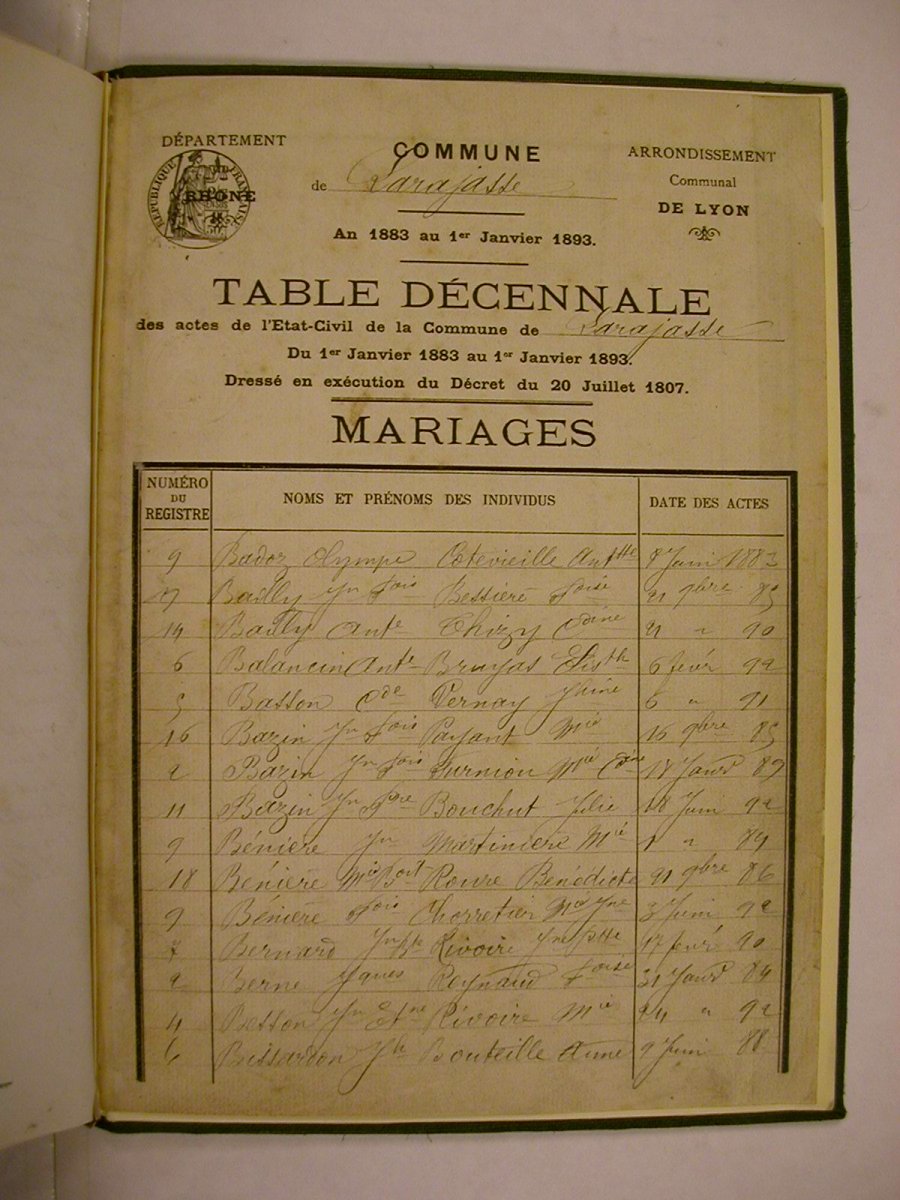 DÉPARTEMENT
RHONE
RÉPUBLIQUE FRANÇAISE
COMMUNE
de Larajasse
ARRONDISSEMENT
Communal
DE LYON
An 1883 au 1er Janvier 1893.
TABLE DÉCENNALE
des actes de l'Etat-Civil de la Commune de Larajasse
Du 1er Janvier 1883 au 1er Janvier 1893.
Dressé en exécution du Décret du 20 Juillet 1807.
MARIAGES
NUMÉRO DU REGISTRE NOMS ET PRÉNOMS DES INDIVIDUS DATE DES ACTES
9 Badoz Olympe Cotevieille Anttte 8 Juin 1883
17 Bailly Jn Fois Bessière Foise 21 9bre 85
14 Bailly Ante Thizy Cdine 21 " 90
6 Balancin Ante Bruyas Elisth 6 fevr 92
5 Basson Cde Vernay Jhine 6 " 91
16 Bazin Jn Fois Payant Mie 16 9bre 85
2 Bazin Jn Fois Furnion Mie Cdine 18 Janvr 89
11 Bazin Jn Pre Bouchut Julie 18 Juin 92
9 Bénière Jn Martinière Mie 1 " 89
18 Bénière Mie Bort Roure Bénédicte 21 9bre 86
9 Bénière Fois Chorretier Mie Jne 3 Juin 92
7 Bernard Jn Bte Rivoire Jne Ptte 17 fevr 90
2 Berne Jques Reynaud Foise 31 Janvr 84
4 Besson Jn Etne Rivoire Mie 24 " 92
6 Bissardon Jh Bouteille Anne 9 Juin 88